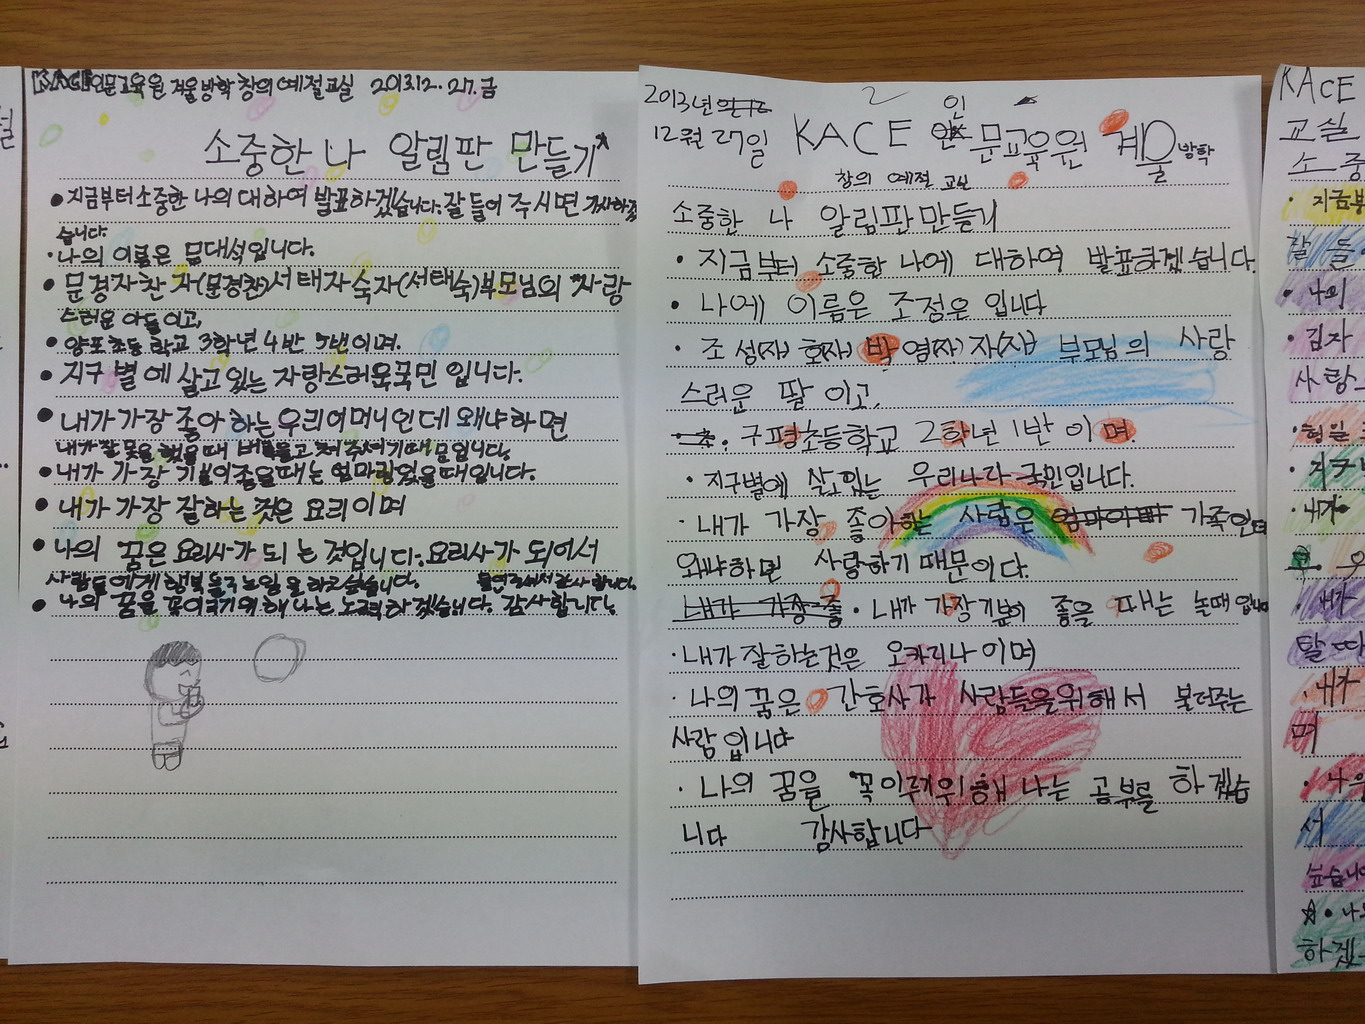 KACE인문교육원 겨울방학 창의예절교실 2013.12.27.금
소중한 나 알림판 만들기
• 지금부터소중한 나의 대하여 발표하겠습니다. 잘 들어 주시면 감사하겠
습니다.
• 나의 이름은 문대석입니다.
• 문경자찬 자(문경찬)서태자숙자(서태숙)부모님의 자랑
스러운 아들이고,
• 양포초등학교 3학년 4반 5번이며.
• 지구 별에 살고 있는 자랑스러운국민 입니다.
• 내가 가장 좋아 하는 우리어머니인데 왜냐하면
내가잘못을 했을때
• 내가 가장 기분이좋을때는 엄마랑있을때입니다.
• 내가 가장 잘하는 것은 요리이며
• 나의 꿈은 요리사가 되 는 것입니다. 요리사가 되어서
사람들에게 행복을주는일을하고싶습니다.
• 나의 꿈을 꼭이루기위해 나는 노력하겠습니다. 감사합니다.
2013년
12월 27일 KACE 인문교육원 계울방학
창의 예절 교실
소중한 나 알림판만들기
• 지금부터 소중함 나에 대하여 발표하겠습니다.
• 나에 이름은 조정은 입니다
• 조 성(자) 호(자) 박 영(자) 자(자) 부모님의 사랑
스러운 딸 이고,
구평초등학교 2학년 1반 이며.
• 지구별에 살고있는 우리나라 국민입니다.
• 내가 가장 좋아하는 사람은 엄마아빠 가족인데
왜냐하면 사랑하기 때문이다.
내가 가장 좋 • 내가 가장기분이 좋을 때는 놀때 입니다
• 내가 잘하는것은 오카리나 이며
• 나의꿈은 간호사가 사람들을위해서 불더주는
사람 입니다
• 나의 꿈을 꼭이루기위해 나는 공부를 하겠습
니다 감사합니다
KACE
교실
소중
• 지금부
잘 들
• 나의
• 김자
사랑스
• 형일
• 지구
• 내가
우
• 내가
탈 따
• 내가
며
• 나의
서
싶습니다
• 나
하겠